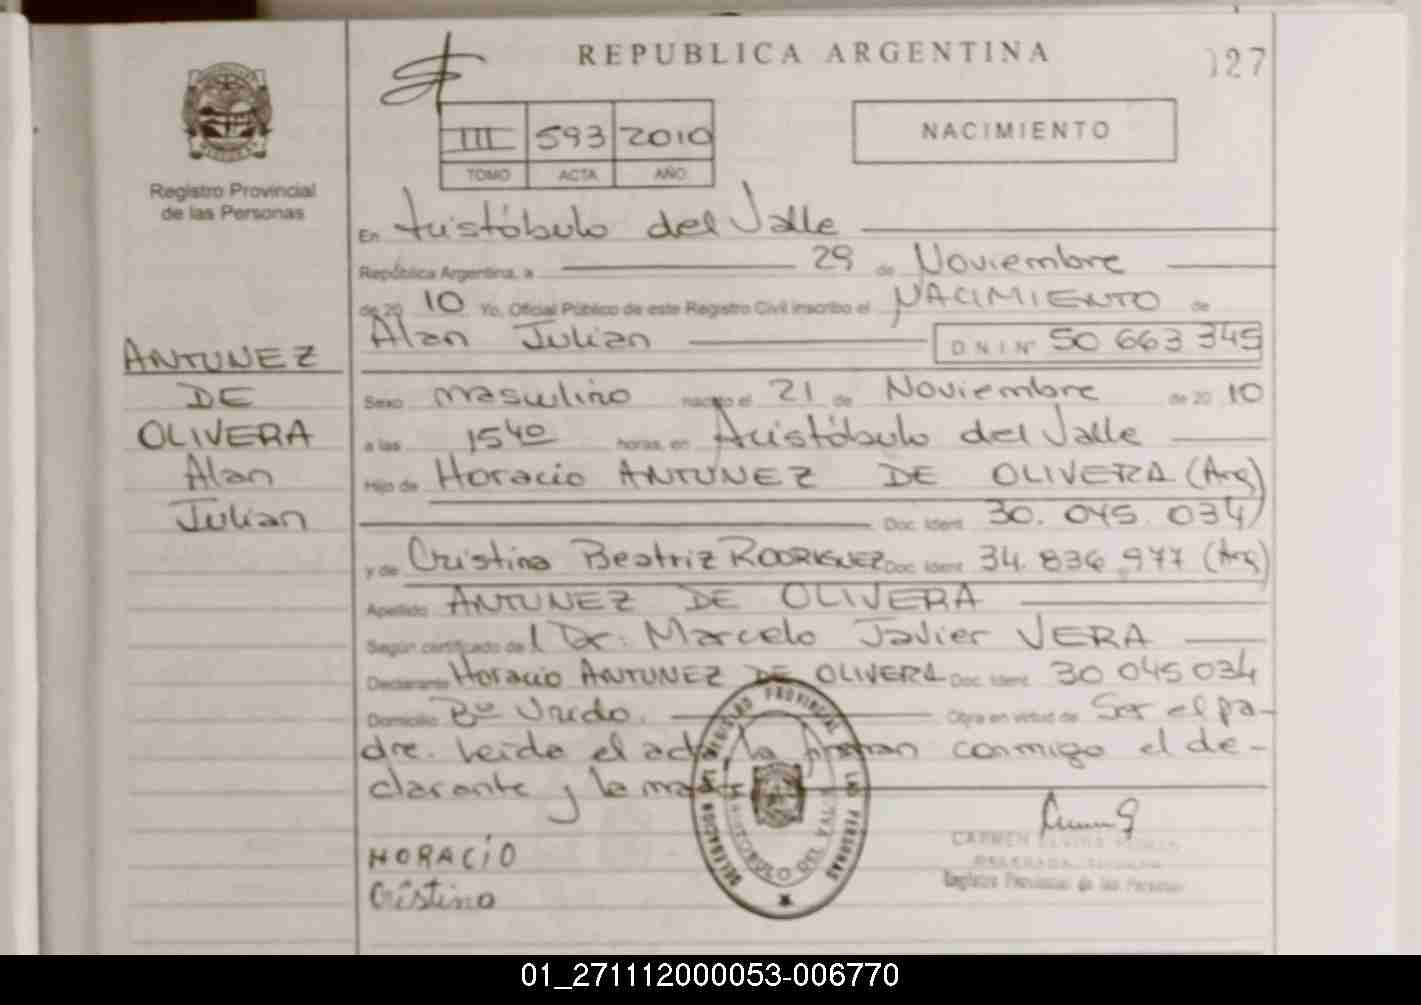 REPUBLICA ARGENTINA
127
Registro Provincial
de las Personas
III 593 2010
TOMO ACTA AÑO
NACIMIENTO
En Aristóbulo del Valle
República Argentina, a 29 de Noviembre
de 20 10 Yo, Oficial Público de este Registro Civil inscribo el NACIMIENTO de
Alan Julian D N I Nº 50 663 345
ANTUNEZ
DE
OLIVERA
Alan
Julian
Sexo masculino nacido el 21 de Noviembre de 20 10
a las 15 40 horas, en Aristóbulo del Valle
Hijo de Horacio ANTUNEZ DE OLIVERA (Arg)
Doc. Ident. 30. 045. 034
y de Cristina Beatriz RODRIGUEZ Doc. Ident. 34. 836 977 (Arg)
Apellido ANTUNEZ DE OLIVERA
Según certificado del Dr. Marcelo Javier VERA
Declarante Horacio ANTUNEZ DE OLIVERA Doc. Ident. 30 045 034
Domicilio Bº Unido. Obra en virtud de Ser el pa-
dre. Leida el acta la firman conmigo el de-
clarante y la madre
HORACIO
Cristina
REGISTRO PROVINCIAL DE LAS PERSONAS
DELEGACION
ARISTOBULO DEL VALLE
CARMEN
Registro Provincial de las Personas
01_271112000053-006770